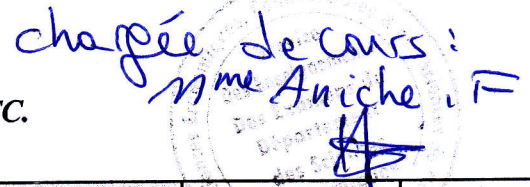 chargée de cours :
Mme Aniche . F
TC.